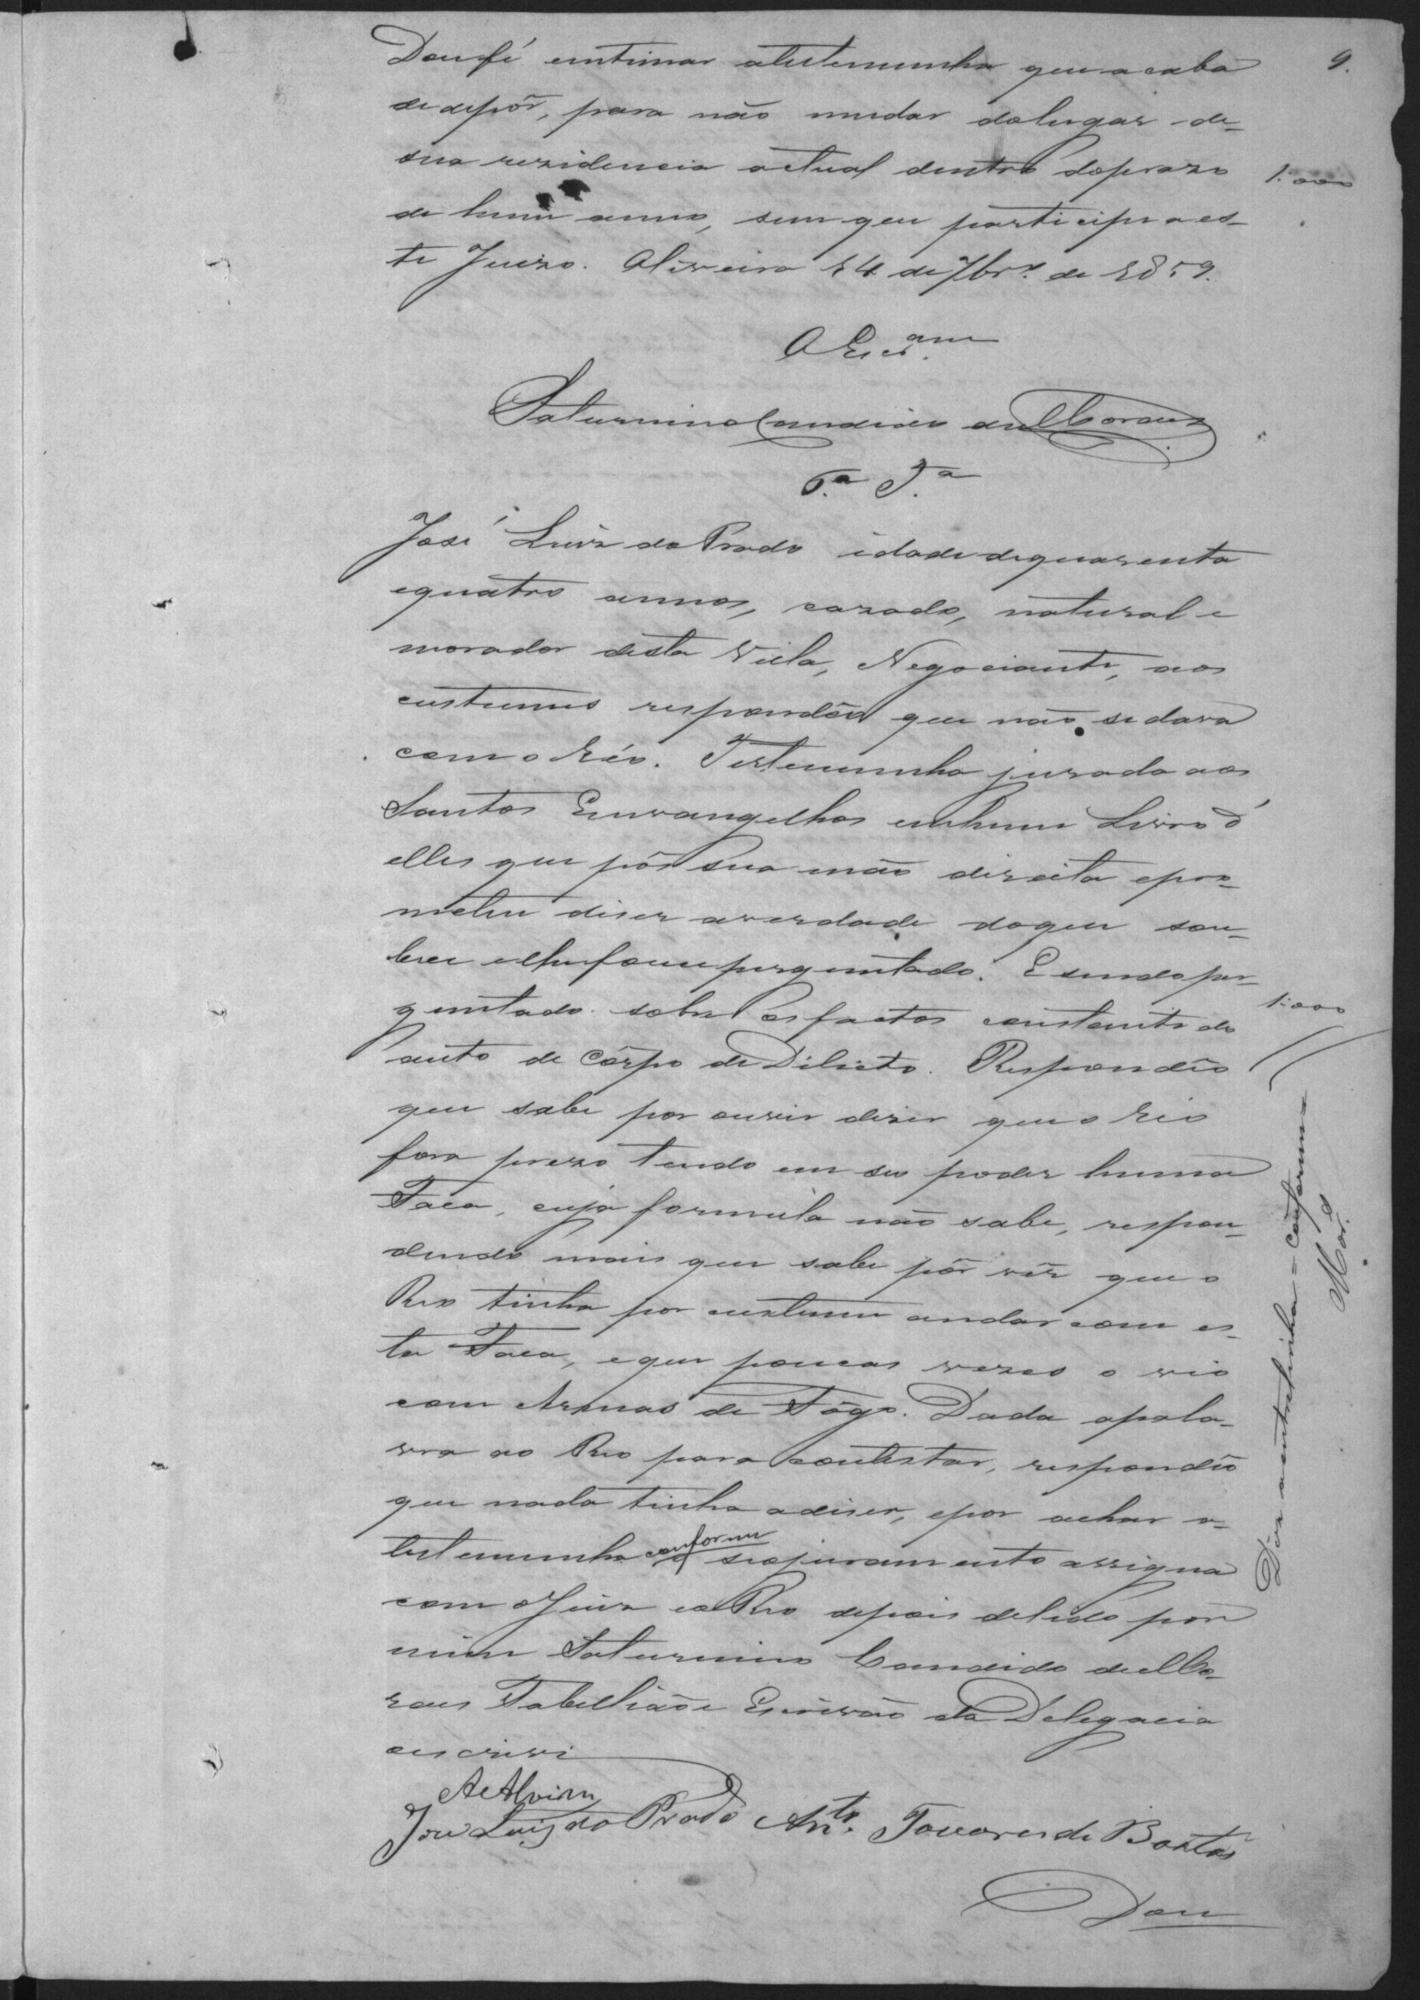 9.
Doufé emtimar atestemunha que acaba
de depôr, para não mudar dolugar de-
sua rezidencia actual dentro doprazo
1:000
de hum anno, sem que participe a es-
te Juizo. Oliveira 14 de 7br.º de 1859.
O Escr.am
Saturnino Candido de Moraes
6.a T.a
José Luiz do Prado idade dequarenta
equatro annos, cazado, natural e
morador desta Villa, Negociante, aos
custumes respondêo que não se dava
com o Réo. Testemunha jurada aos
Santos Envangelhos emhum Livro d'
elles que pôs sua mão direita epro-
meteu diser averdade doque sou-
bece elhefosse perguntado. E sendo per-
guntado sobre os factos constante do
1:000
auto de Côrpo de Delicto. Respondêo
que sabe por ouvir dizer que o Reo
fora prezo tendo em seo poder huma
Faca, cuja formula não sabe, respon-
dendo mais que sabe pôr vêr que o
Reo tinha por custume andar com es-
ta Faca, eque poucas vezes o vio
com Armas de Fôgo. Dada apala-
vra ao Reo para contestar, respondêo
que nada tinha adiser, epor achar a-
testemunha conforme seojuramento assigna
com oJuiz eo Reo depois delido por
mim Saturnino Candido de Mo-
raes Tabelliãoe Escrivão da Delegacia
oescrivi
AeAlvim
José Luiz do Prado Anto. Tavares de Bastos
Dou
Diz a entrelinha = conforme
Mor.es